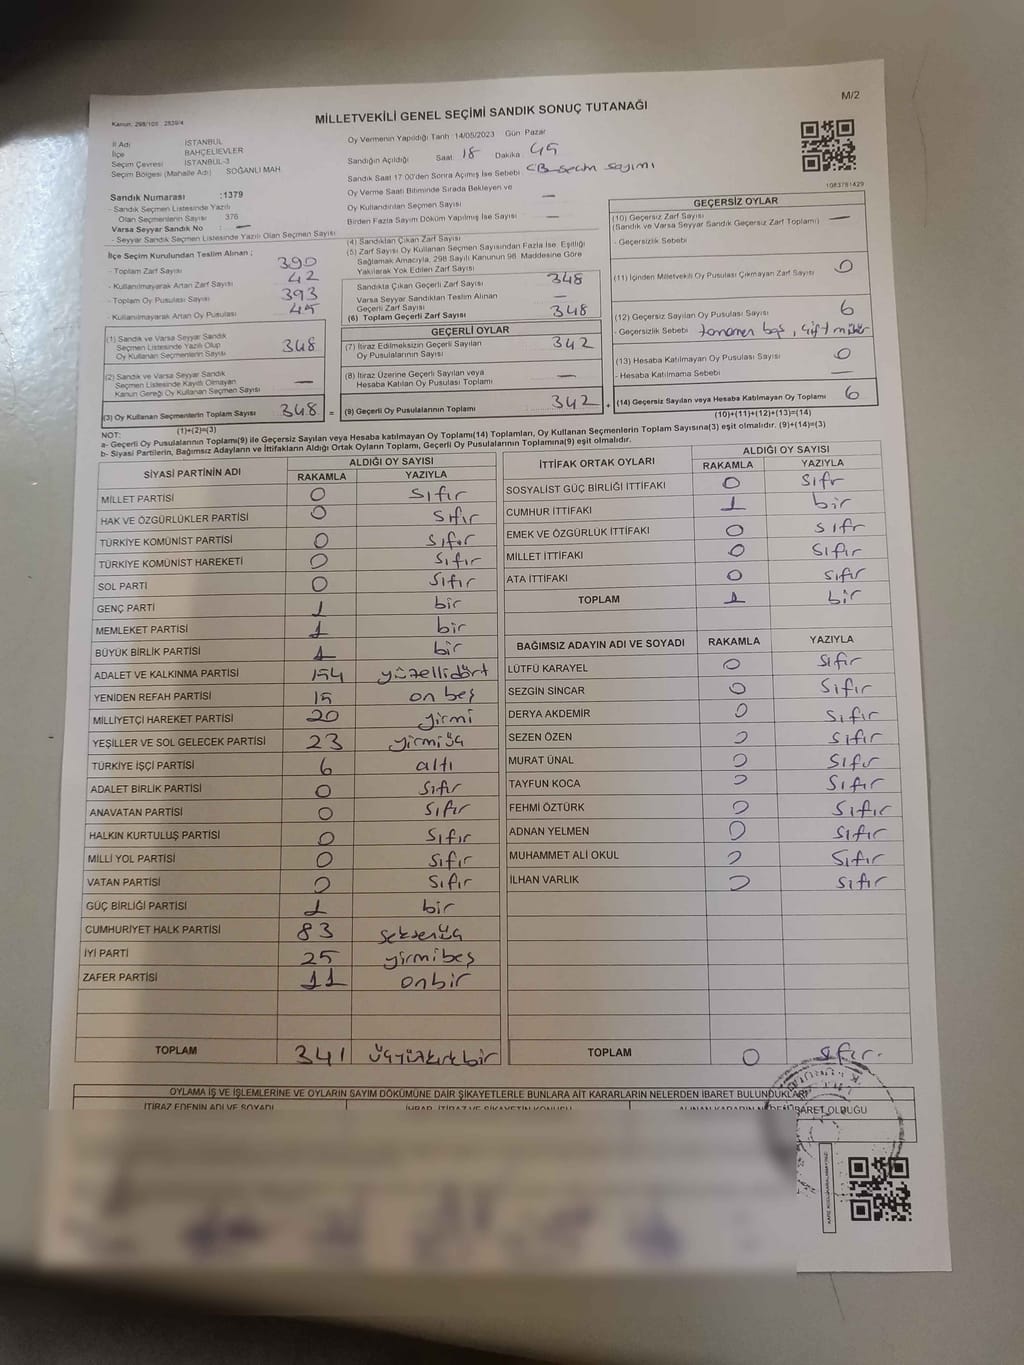 M/2
Kanun: 298/105 , 2839/4
MİLLETVEKİLİ GENEL SEÇİMİ SANDIK SONUÇ TUTANAĞI
İl Adı İSTANBUL
İlçe BAHÇELİEVLER
Seçim Çevresi İSTANBUL-3
Seçim Bölgesi (Mahalle Adı) SOĞANLI MAH
Sandık Numarası :1379
- Sandık Seçmen Listesinde Yazılı
Olan Seçmenlerin Sayısı 376
Varsa Seyyar Sandık No : —
- Seyyar Sandık Seçmen Listesinde Yazılı Olan Seçmen Sayısı
Oy Vermenin Yapıldığı Tarih :14/05/2023 Gün Pazar
Sandığın Açıldığı Saat 18 Dakika 45
Sandık Saat 17:00'den Sonra Açımış İse Sebebi CB seçim sayımı
Oy Verme Saati Bitiminde Sırada Bekleyen ve
Oy Kullandırılan Seçmen Sayısı —
Birden Fazla Sayım Döküm Yapılmış İse Sayısı —
1083781429
İlçe Seçim Kurulundan Teslim Alınan ;
- Toplam Zarf Sayısı 390
- Kullanılmayarak Artan Zarf Sayısı 42
- Toplam Oy Pusulası Sayısı 393
- Kullanılmayarak Artan Oy Pusulası 45
(1) Sandık ve Varsa Seyyar Sandık
Seçmen Listesinde Yazılı Olup
Oy Kullanan Seçmenlerin Sayısı 348
(2) Sandık ve Varsa Seyyar Sandık
Seçmen Listesinde Kayıtlı Olmayan
Kanun Gereği Oy Kullanan Seçmen Sayısı —
(3) Oy Kullanan Seçmenlerin Toplam Sayısı 348 =
(1)+(2)=(3)
(4) Sandıktan Çıkan Zarf Sayısı
(5) Zarf Sayısı Oy Kullanan Seçmen Sayısından Fazla İse, Eşitliği
Sağlamak Amacıyla, 298 Sayılı Kanunun 98. Maddesine Göre
Yakılarak Yok Edilen Zarf Sayısı
Sandıkta Çıkan Geçerli Zarf Sayısı 348
Varsa Seyyar Sandıktan Teslim Alınan
Geçerli Zarf Sayısı —
(6) Toplam Geçerli Zarf Sayısı 348
GEÇERLİ OYLAR
(7) İtiraz Edilmeksizin Geçerli Sayılan
Oy Pusulalarının Sayısı 342
(8) İtiraz Üzerine Geçerli Sayılan veya
Hesaba Katılan Oy Pusulası Toplamı —
(9) Geçerli Oy Pusulalarının Toplamı 342 +
GEÇERSİZ OYLAR
(10) Geçersiz Zarf Sayısı
(Sandık ve Varsa Seyyar Sandık Geçersiz Zarf Toplamı) —
- Geçersizlik Sebebi
(11) İçinden Milletvekili Oy Pusulası Çıkmayan Zarf Sayısı 0
(12) Geçersiz Sayılan Oy Pusulası Sayısı 6
- Geçersizlik Sebebi tamamen boş, çift mühür
(13) Hesaba Katılmayan Oy Pusulası Sayısı 0
- Hesaba Katılmama Sebebi —
(14) Geçersiz Sayılan veya Hesaba Katılmayan Oy Toplamı 6
(10)+(11)+(12)+(13)=(14)
NOT:
a- Geçerli Oy Pusulalarının Toplamı(9) ile Geçersiz Sayılan veya Hesaba katılmayan Oy Toplamı(14) Toplamları, Oy Kullanan Seçmenlerin Toplam Sayısına(3) eşit olmalıdır. (9)+(14)=(3)
b- Siyasi Partilerin, Bağımsız Adayların ve İttifakların Aldığı Ortak Oyların Toplamı, Geçerli Oy Pusulalarının Toplamına(9) eşit olmalıdır.
SİYASİ PARTİNİN ADI ALDIĞI OY SAYISI
RAKAMLA YAZIYLA
MİLLET PARTİSİ 0 sıfır
HAK VE ÖZGÜRLÜKLER PARTİSİ 0 sıfır
TÜRKİYE KOMÜNİST PARTİSİ 0 sıfır
TÜRKİYE KOMÜNİST HAREKETİ 0 sıfır
SOL PARTİ 0 sıfır
GENÇ PARTİ 1 bir
MEMLEKET PARTİSİ 1 bir
BÜYÜK BİRLİK PARTİSİ 1 bir
ADALET VE KALKINMA PARTİSİ 154 yüzellidört
YENİDEN REFAH PARTİSİ 15 on beş
MİLLİYETÇİ HAREKET PARTİSİ 20 yirmi
YEŞİLLER VE SOL GELECEK PARTİSİ 23 yirmiüç
TÜRKİYE İŞÇİ PARTİSİ 6 altı
ADALET BİRLİK PARTİSİ 0 sıfır
ANAVATAN PARTİSİ 0 sıfır
HALKIN KURTULUŞ PARTİSİ 0 sıfır
MİLLİ YOL PARTİSİ 0 sıfır
VATAN PARTİSİ 0 sıfır
GÜÇ BİRLİĞİ PARTİSİ 1 bir
CUMHURİYET HALK PARTİSİ 83 seksenüç
İYİ PARTİ 25 yirmibeş
ZAFER PARTİSİ 11 onbir
TOPLAM 341 üçyüzkırkbir
İTTİFAK ORTAK OYLARI ALDIĞI OY SAYISI
RAKAMLA YAZIYLA
SOSYALİST GÜÇ BİRLİĞİ İTTİFAKI 0 sıfr
CUMHUR İTTİFAKI 1 bir
EMEK VE ÖZGÜRLÜK İTTİFAKI 0 sıfr
MİLLET İTTİFAKI 0 sıfır
ATA İTTİFAKI 0 sıfır
TOPLAM 1 bir
BAĞIMSIZ ADAYIN ADI VE SOYADI RAKAMLA YAZIYLA
LÜTFÜ KARAYEL 0 sıfır
SEZGİN SİNCAR 0 sıfır
DERYA AKDEMİR 0 sıfır
SEZEN ÖZEN 0 sıfır
MURAT ÜNAL 0 sıfır
TAYFUN KOCA 0 sıfır
FEHMİ ÖZTÜRK 0 sıfır
ADNAN YELMEN 0 sıfır
MUHAMMET ALİ OKUL 0 sıfır
İLHAN VARLIK 0 sıfır
TOPLAM 0 sıfır.
OYLAMA İŞ VE İŞLEMLERİNE VE OYLARIN SAYIM DÖKÜMÜNE DAİR ŞİKAYETLERLE BUNLARA AİT KARARLARIN NELERDEN İBARET BULUNDUKLARI
İTİRAZ EDENİN ADI VE SOYADI İHBAR, İTİRAZ VE ŞİKAYETİN KONUSU ALINAN KARARIN NEDEN İBARET OLDUĞU